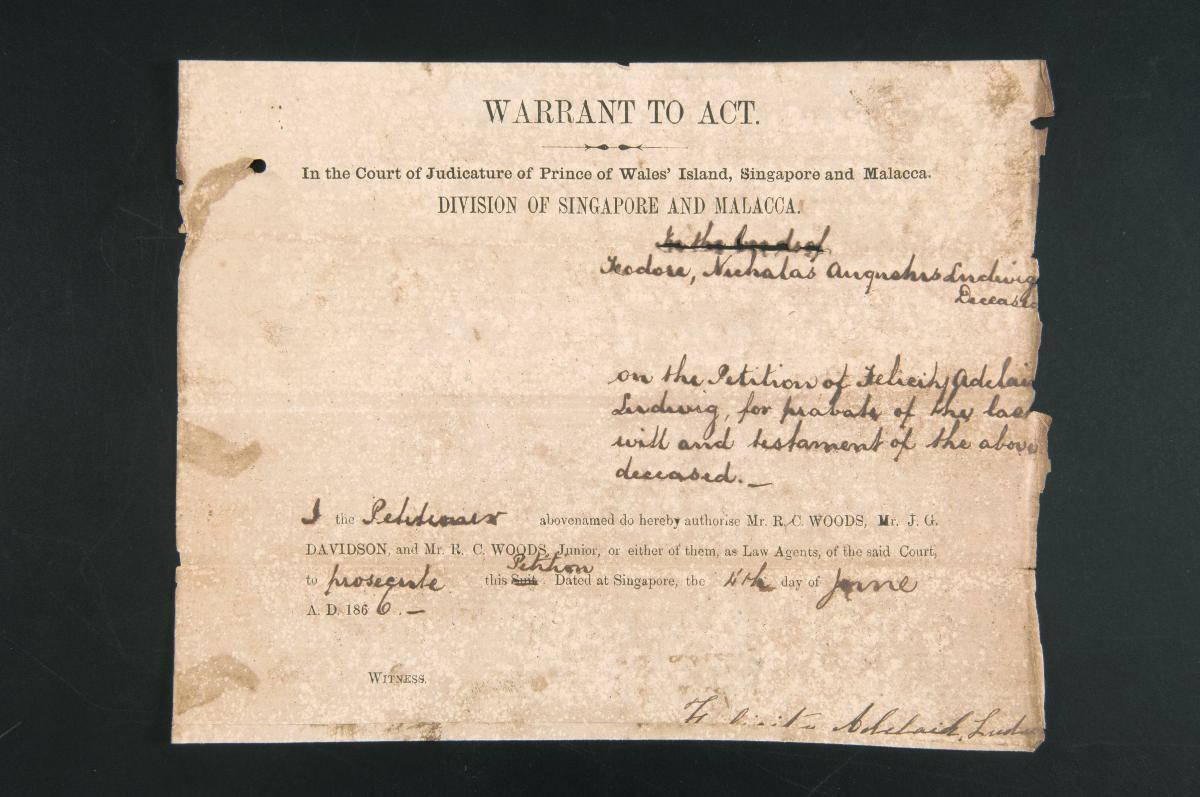 WARRANT TO ACT.
In the Court of Judicature of Prince of Wales' Island, Singapore and Malacca.
DIVISION OF SINGAPORE AND MALACCA.
In the Goods of
Teodore, Nicholas Augustus Ludwig
Deceased
on the Petition of Felicity Adelai
Ludwig, for probate of the las
will and testament of the above
deceased. _
I the Petitioner abovenamed do hereby authorise Mr. R. C. WOODS, Mr. J. G.
DAVIDSON, and Mr. R. C. WOODS, Junior, or either of them, as Law Agents, of the said Court,
Petition
to prosecute this Suit. Dated at Singapore, the 4th day of June
A. D. 1866. —
WITNESS.
Adelaid Ludw